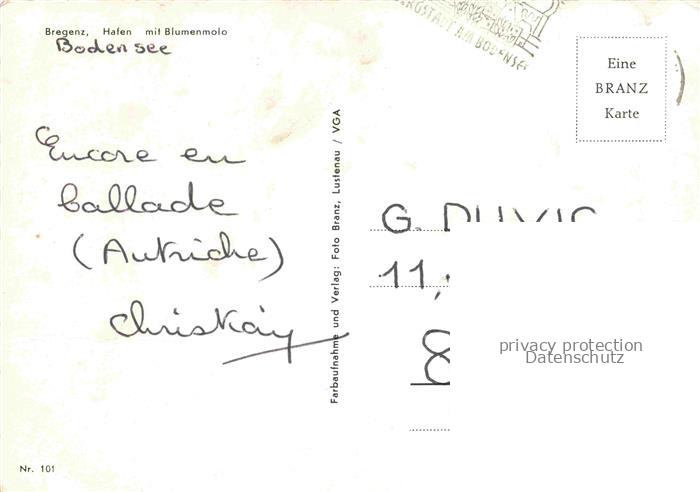 Bregenz, Hafen mit Blumenmolo
Bodensee
AM BODENSEE
Eine
BRANZ
Karte
Encore en
ballade
(Autriche)
Farbaufnahme und Verlag: Foto Branz, Lustenau / VGA
G.
11,
8
privacy protection
Datenschutz
Nr. 101